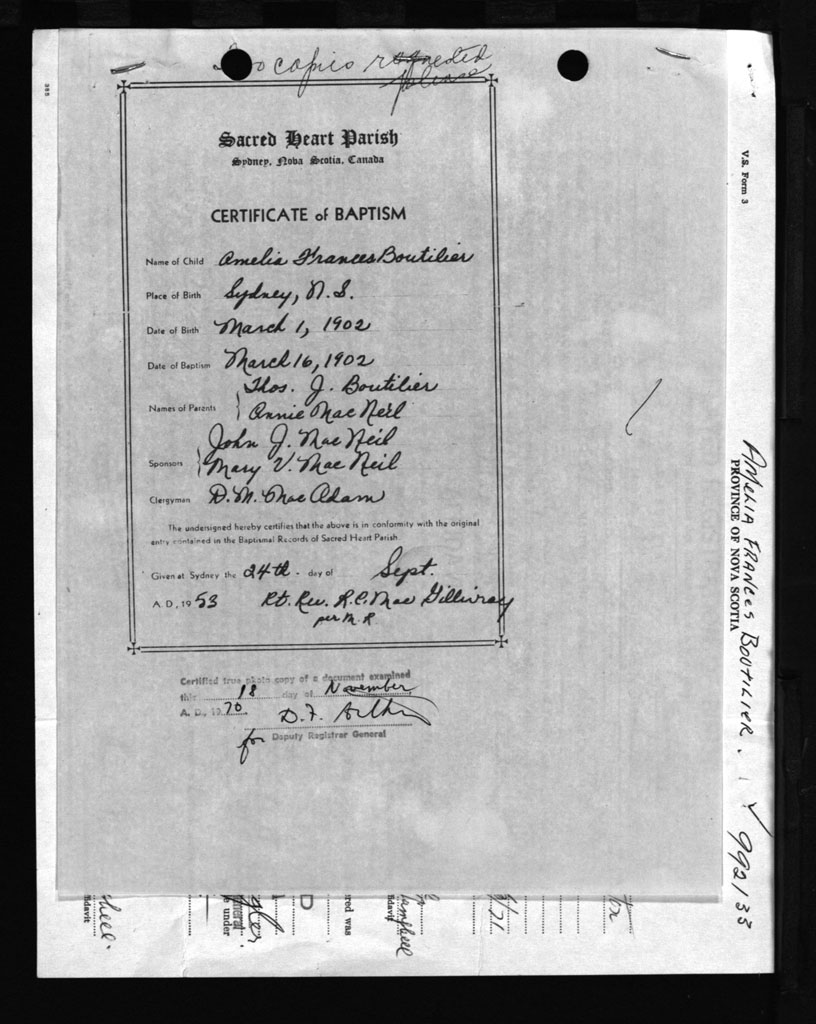 Two copies requested
please
Sacred Heart Parish
Sydney, Nova Scotia, Canada
CERTIFICATE of BAPTISM
Name of Child Amelia Frances Boutilier
Place of Birth Sydney, N. S.
Date of Birth March 1, 1902
Date of Baptism March 16, 1902
Thos. J. Boutilier
Names of Parents } Annie Mac Neil
John J. Mac Neil
Sponsors } Mary V. Mac Neil
Clergyman D. M. Mac Adam
The undersigned hereby certifies that the above is in conformity with the original
entry contained in the Baptismal Records of Sacred Heart Parish.
Given at Sydney the 24th. day of Sept.
A. D., 19 53 Rt. Rev. R. C. Mac Gillivray
per M. R
Certified true photo copy of a document examined
this 18 day of November
A. D., 19 70 D. F.
for Deputy Registrar General
V.S. Form 3
AMELIA FRANCES BOUTILIER. 992133
PROVINCE OF NOVA SCOTIA
385
fidavit
e under
neral
D
red was
Campbell
fidavit
/21